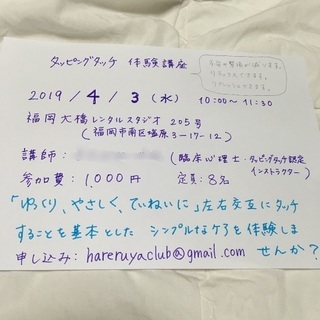 タッピングタッチ 体験講座
心身の緊張が減ります。
リラックスできます。
リフレッシュできます。
2019/4/3(水) 10:00〜11:30
福岡大橋レンタルスタジオ 205号
(福岡市南区塩原3-17-12)
講師: (臨床心理士・タッピングタッチ認定
インストラクター)
参加費: 1,000円 定員: 8名
「ゆっくり、やさしく、ていねいに」左右交互にタッチ
することを基本とした シンプルなケアを体験しま
せんか?
申し込み: hareruyaclub@gmail.com